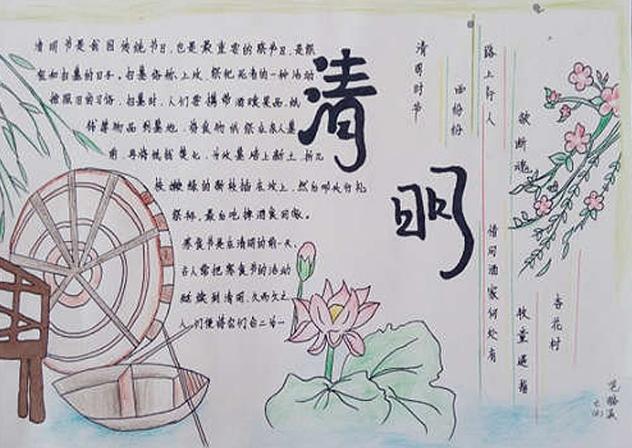 清明
清明节是我国传统节日，也是最重要的祭节日，是祭
祖和扫墓的日子。扫墓俗称上坟，祭祀死者的一种活动
按照旧的习俗，扫墓时，人们要携带酒食果品，纸
钱等物品到墓地，将食物供祭在亲人墓
前，再将纸钱焚化，为坟墓培上新土，折几
枝嫩绿的新枝插在坟上，然后叩头行礼
祭拜。最后吃掉酒食回家。
寒食节是在清明的前一天，
古人常把寒食节的活动
延续到清明，久而久之
人们便将它们合二为一
清明时节
雨纷纷
路上行人
欲断魂
借问酒家何处有
牧童遥指
杏花村